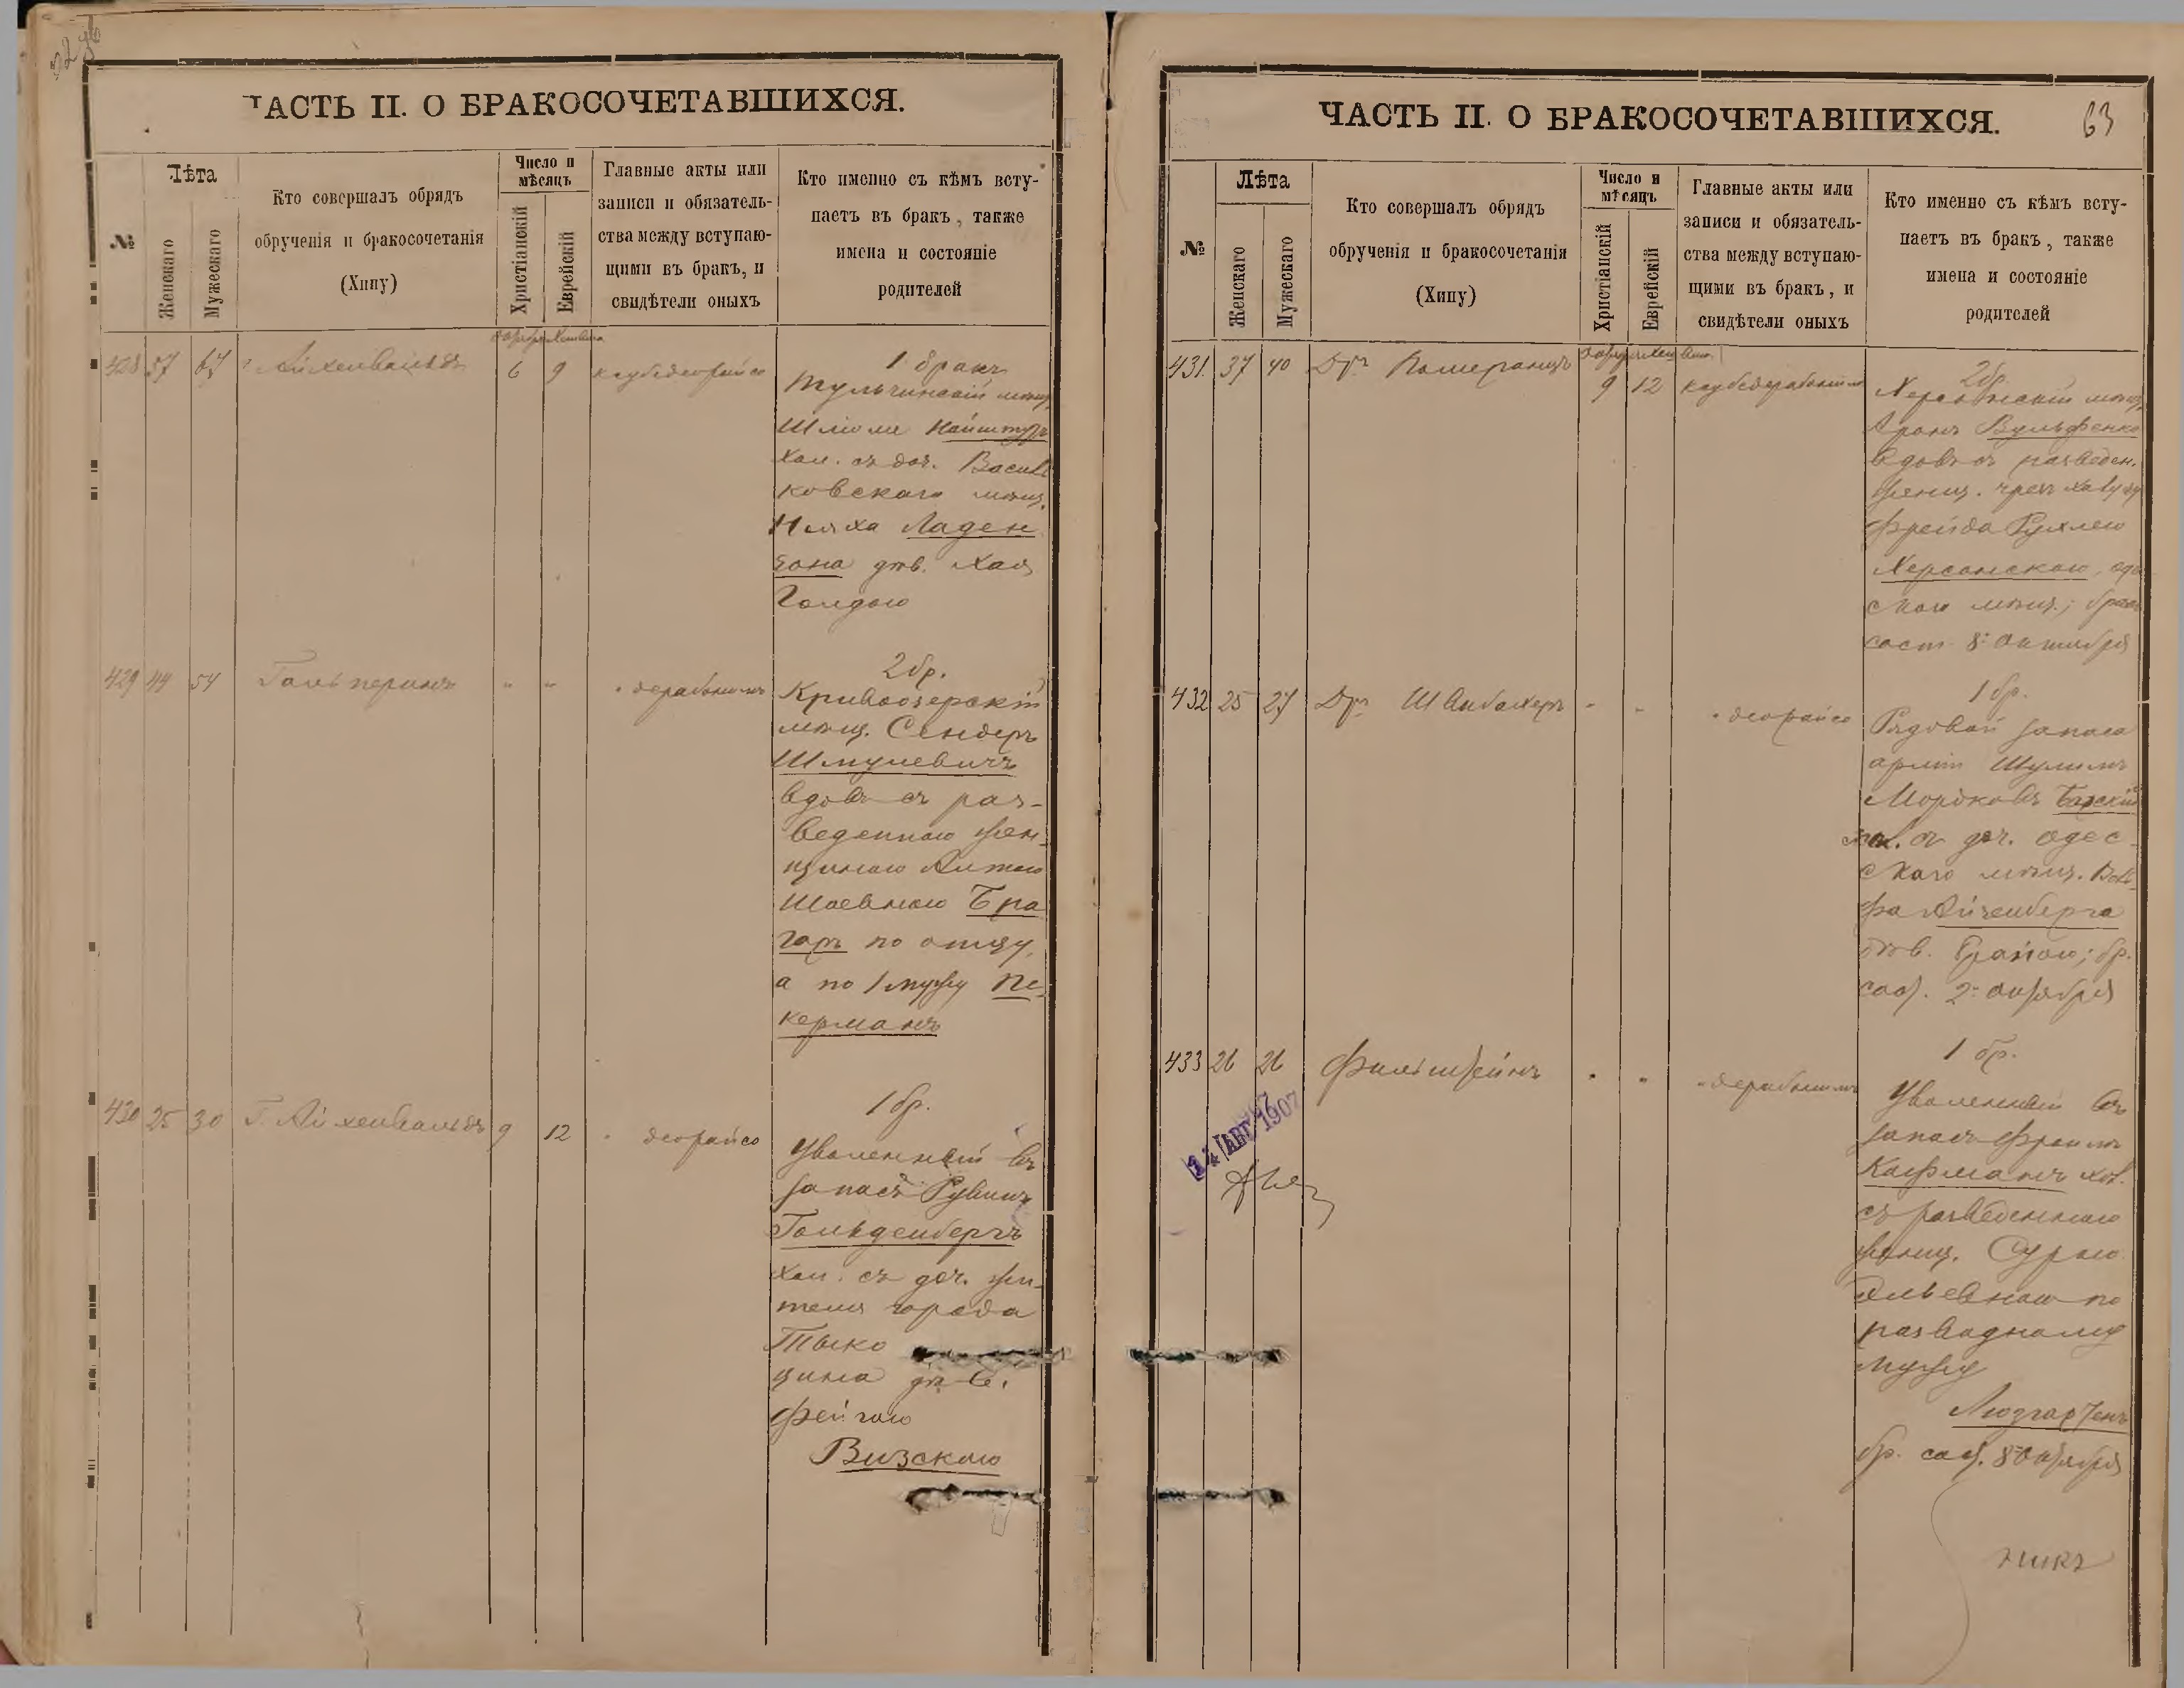 ЧАСТЬ II. О БРАКОСОЧЕТАВШИХСЯ.
№
Лѣта
Женскаго
Мужескаго
Кто совершалъ обрядъ
обрученія и бракосочетанія
(Хипу)
Число и
мѣсяцъ
Христіанскій
Еврейскій
Главные акты или
записи и обязатель-
ства между вступаю-
щими въ бракъ, и
свидѣтели оныхъ
Кто именно съ кѣмъ всту-
паетъ въ бракъ, также
имена и состояніе
родителей
428 57 67 Айхенвальдъ 6 9
1 бракъ
Тульчинскій мѣщ.
Шлiома
хол. съ доч. Василь
ковскаго мѣщ.
Ладен
зона дѣв. Хая
Голдою
429 44 54 Гальперинъ " "
2 бр.
Кривоозерскій
мѣщ. Сендеръ
Шмулевичъ
вдов. съ раз-
веденною жен-
щиною
Шаевною Бра
гаръ по отцу,
а по 1 мужу Пе-
керманъ
430 25 30 Г. Айхенвальдъ 9 12 " деорайсо
1 бр.
Уволенный въ
запасъ Рувинъ
Гольденбергъ
хол. съ доч. жи-
теля города
Тыко
цина дѣв.
Фейгою
Визскою
ЧАСТЬ II. О БРАКОСОЧЕТАВШИХСЯ.
63
№
Лѣта
Женскаго
Мужескаго
Кто совершалъ обрядъ
обрученія и бракосочетанія
(Хипу)
Число и
мѣсяцъ
Христіанскій
Еврейскій
Главные акты или
записи и обязатель-
ства между вступаю-
щими въ бракъ, и
свидѣтели оныхъ
Кто именно съ кѣмъ всту-
паетъ въ бракъ, также
имена и состояніе
родителей
431 37 40 Дръ Померанцъ 9 12
2 бр.
Херсонскій мѣщ.
Аронъ Вульфенко
вдов. съ разведен.
женщ.
Фрейда Рухлею
Херсонскою, оде
скою мѣщ.; бракъ
сост. 8 октября
432 25 27 Дръ Швабахеръ " " " деорайсо
1 бр.
Рядовой запаса
арміи Шулимъ
Мордковъ Барскій
хол. съ доч. одес-
скаго мѣщ. Воль-
фа Айзенберга
дѣв.; бр.
сост. 2 октября
433 26 26 Фильштейнъ " "
1 бр.
Уволенный въ
запасъ Фроимъ
Кауфманъ хол.
съ разведенною
женщ. Сурою
Эльевною по
разводному
мужу
Люзгартенъ
бр. сост. 8 октября
14 АВГ. 1907